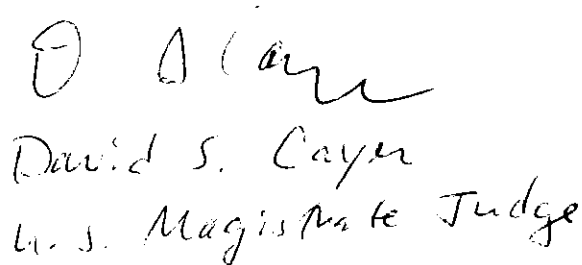 David S. Cayer
U.S. Magistrate Judge